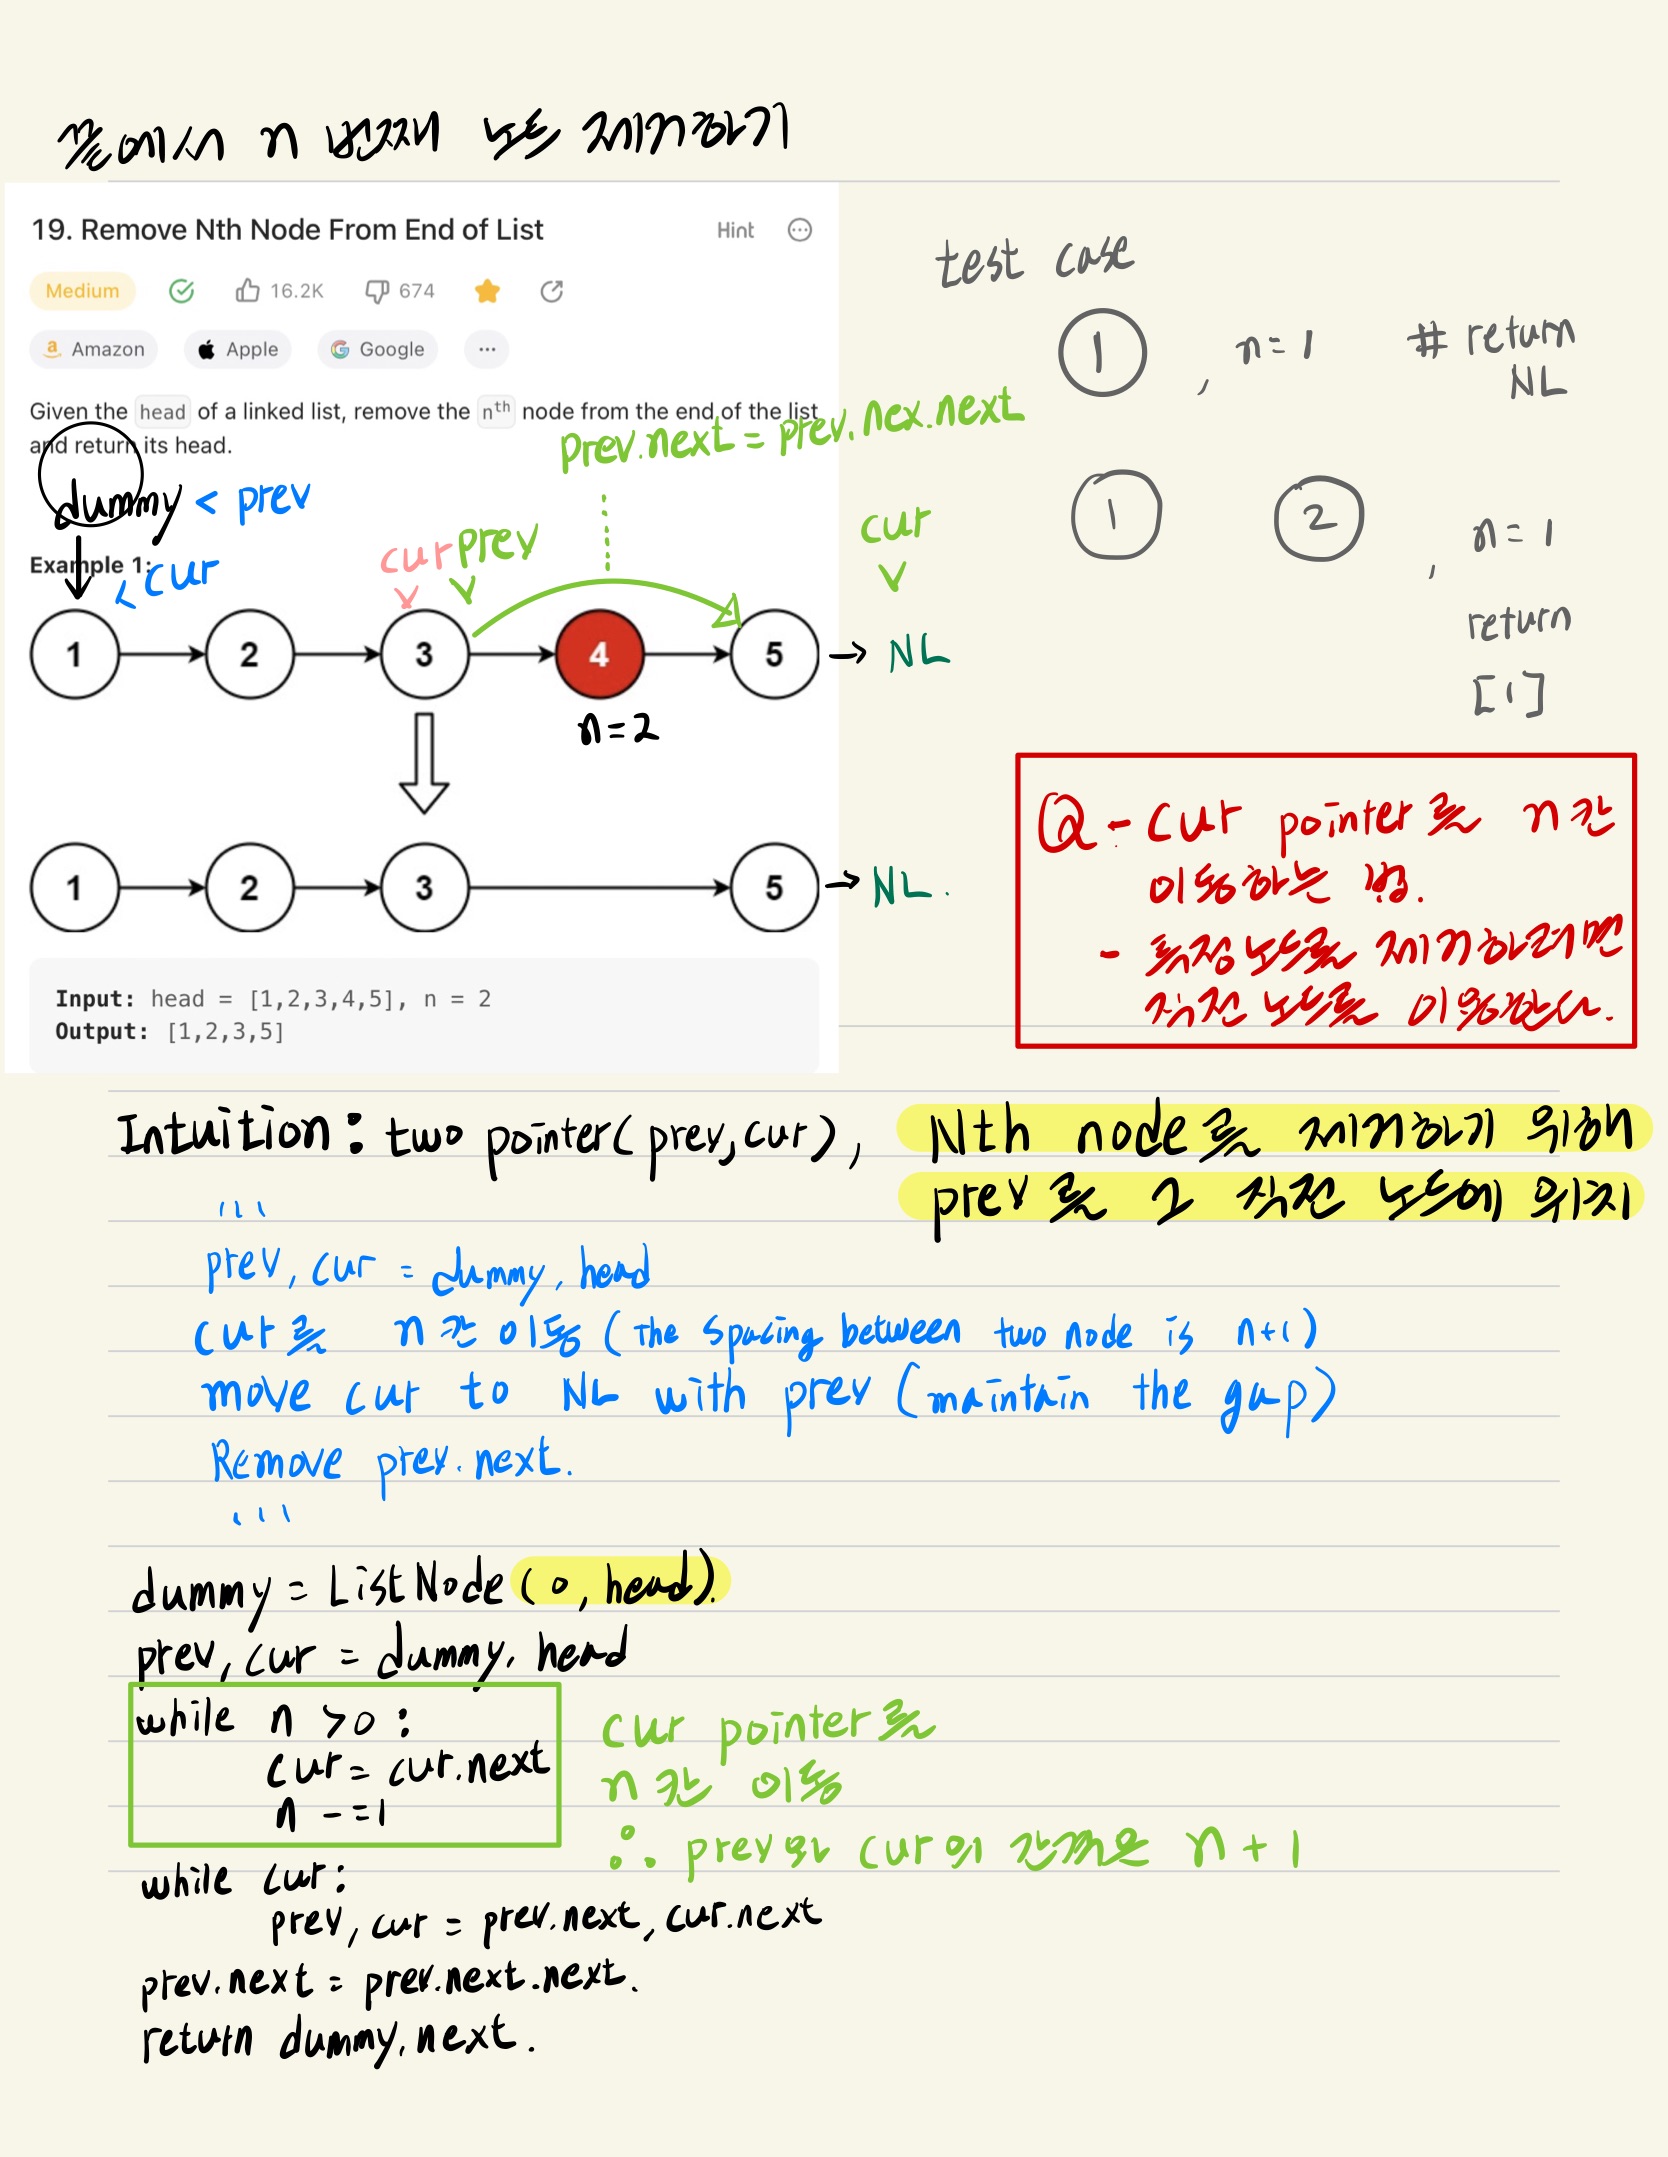 끝에서 n 번째 노드 제거하기
19. Remove Nth Node From End of List
Hint
Medium
16.2K
674
Amazon
Apple
Google
Given the head of a linked list, remove the nth node from the end of the list
and return its head.
prev.next = prev.nex.next
dummy < prev
Example 1:
< cur
cur
prev
cur
1 2 3 4 5 → NL
n=2
1 2 3 5 → NL.
Input: head = [1,2,3,4,5], n = 2
Output: [1,2,3,5]
test case
1 , n=1 # return
NL
1 2 , n=1
return
[1]
Q - cur pointer를 n칸
이동하는 법.
- 특정 노드를 제거하려면
직전 노드를 이용한다.
Intuition: two pointer(prev,cur), Nth node를 제거하기 위해
prev를 그 직전 노드에 위치
'''
prev, cur = dummy, head
cur를 n칸 이동 (The spacing between two node is n+1)
move cur to NL with prev (maintain the gap)
Remove prev.next.
'''
dummy = ListNode(0, head).
prev, cur = dummy, head
while n >0 :
cur = cur.next
n -=1
cur pointer를
n칸 이동
∴ prev와 cur의 간격은 n+1
while cur:
prev, cur = prev.next, cur.next
prev.next = prev.next.next.
return dummy.next.